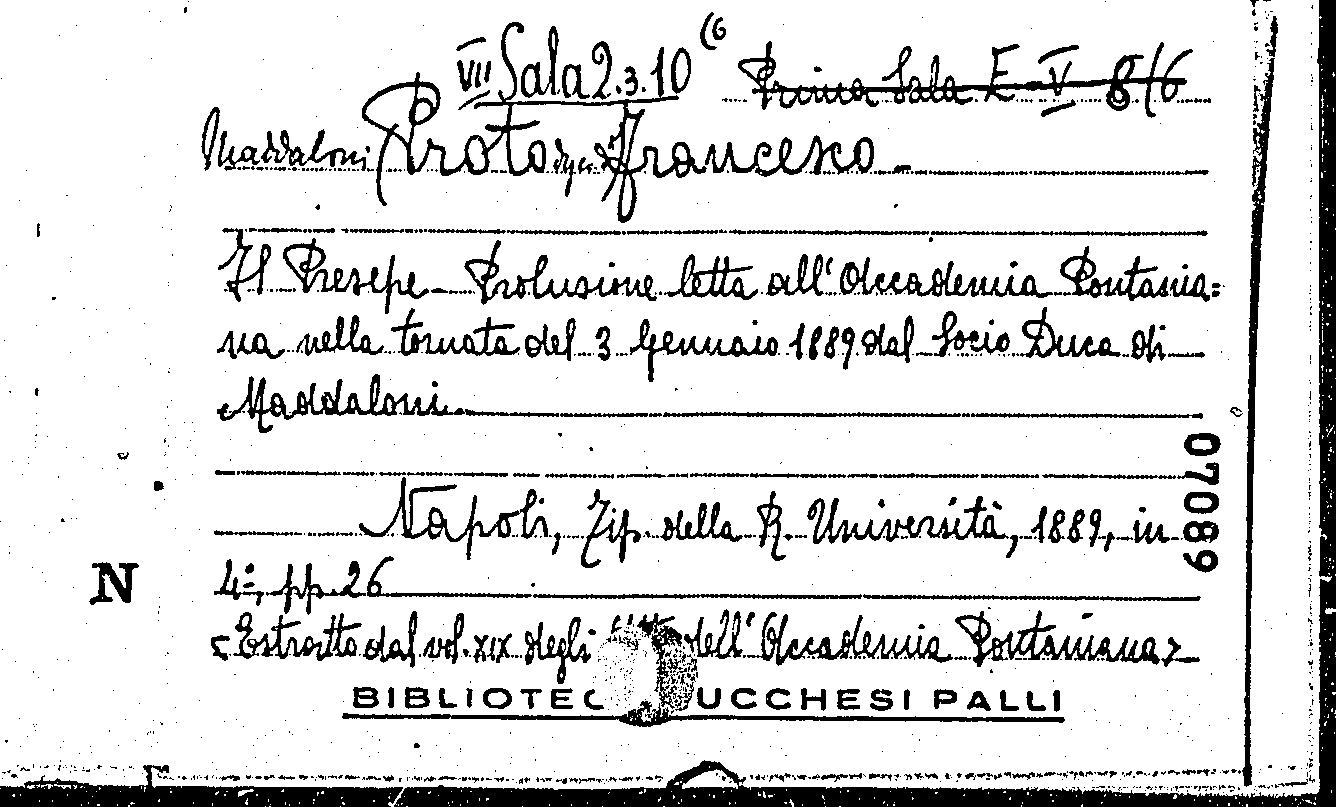 VII Sala 2.3.10 (6 Prima Sala E-V 8/6
Maddaloni Proto Francesco.-
Il Presepe - Prolusione letta all'Accademia Pontania=
na nella tornata del 3 Gennaio 1889 dal Socio Duca di
Maddaloni.
Napoli, Tip. della R. Università, 1889, in
4º, pp. 26
<Estratto dal vol. XIX degli dell'Accademia Pontaniana>
BIBLIOTEC UCCHESI PALLI
07089
N